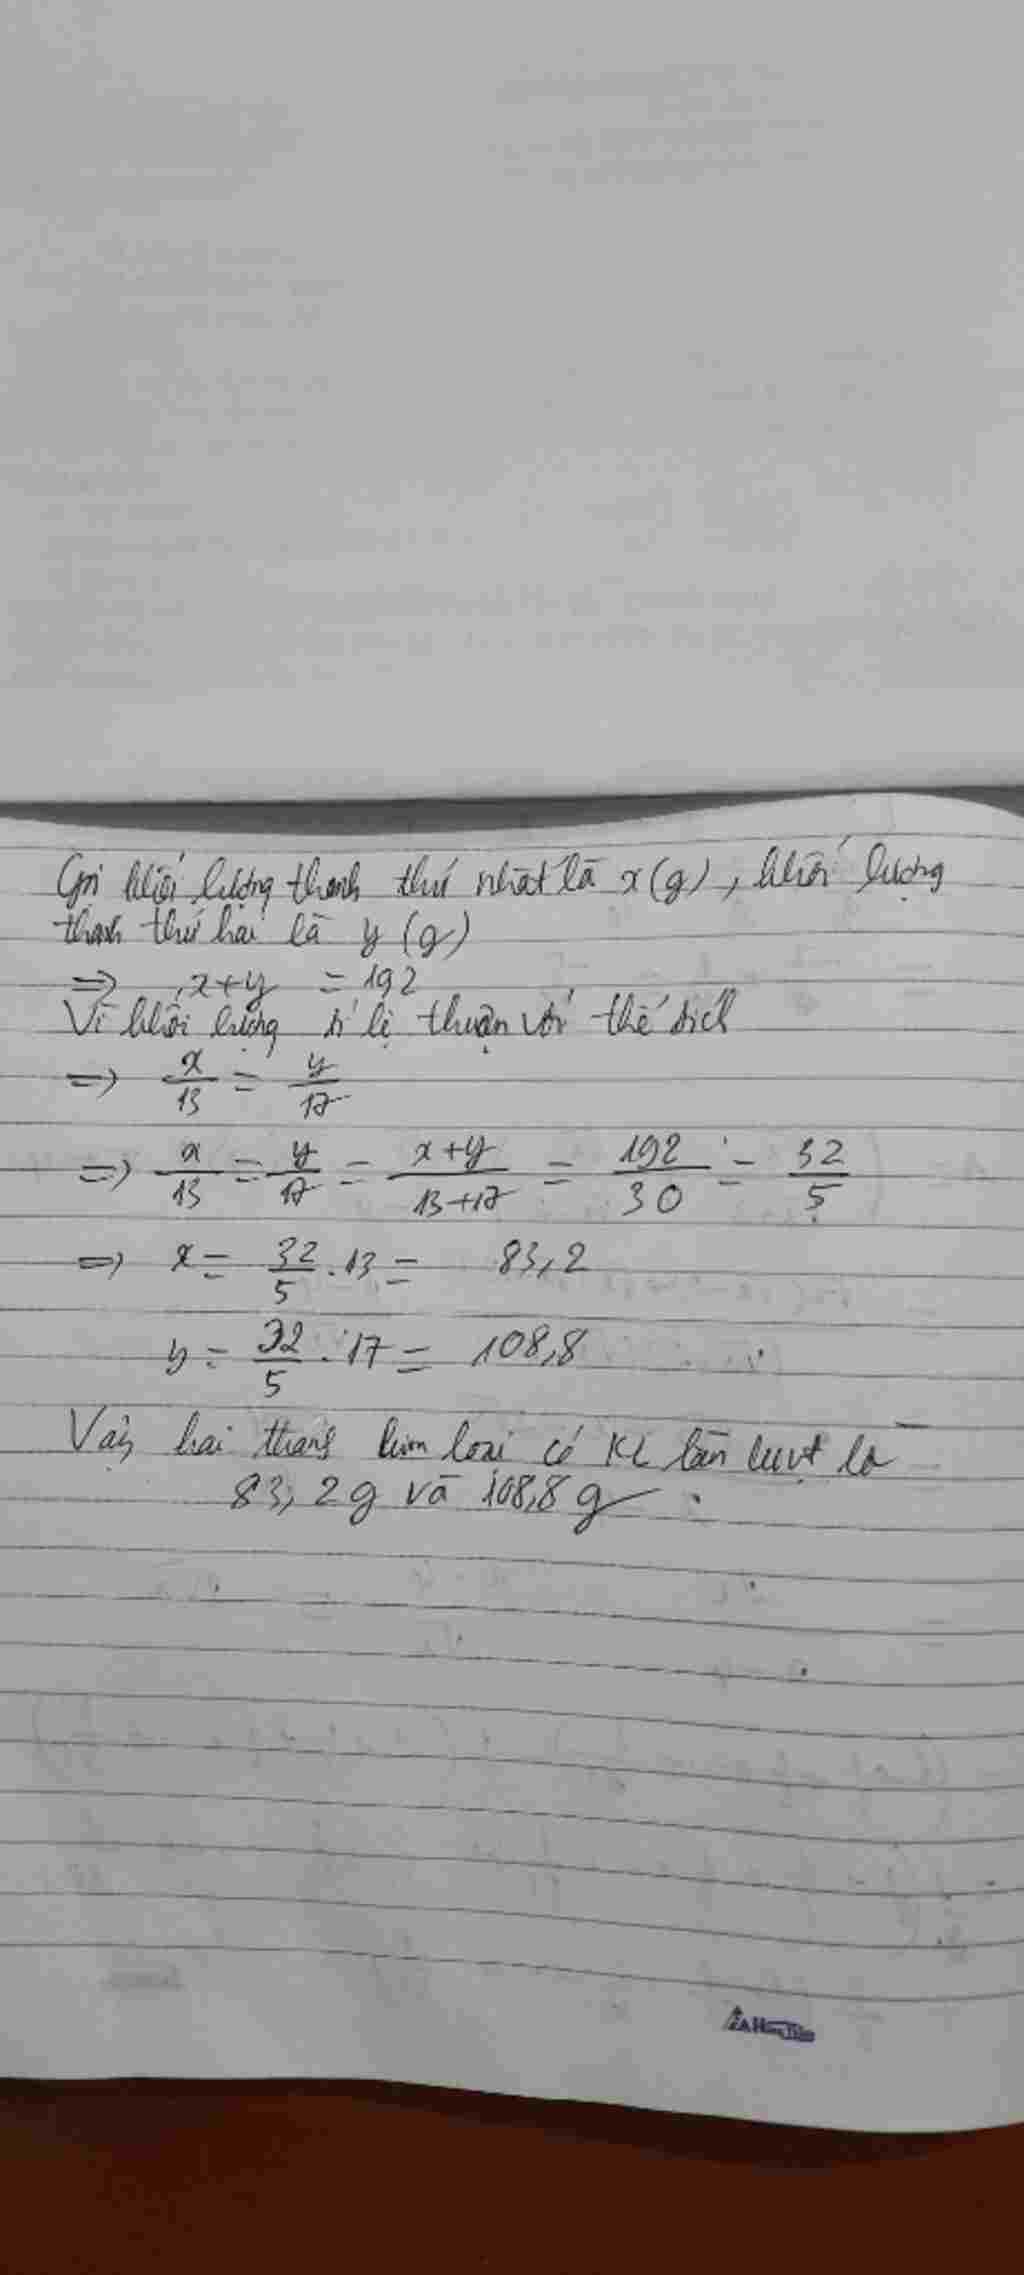 Gọi khối lượng thanh thứ nhất là x(g), khối lượng
thanh thứ hai là y (g)
=> x+y = 192
Vì khối lượng tỉ lệ thuận với thể tích
=> x/13 = y/17
=> x/13 = y/17 = x+y/13+17 = 192/30 = 32/5
=> x = 32/5 . 13 = 83,2
y = 32/5 . 17 = 108,8
Vậy hai thanh kim loại có KL lần lượt là
83,2g và 108,8g